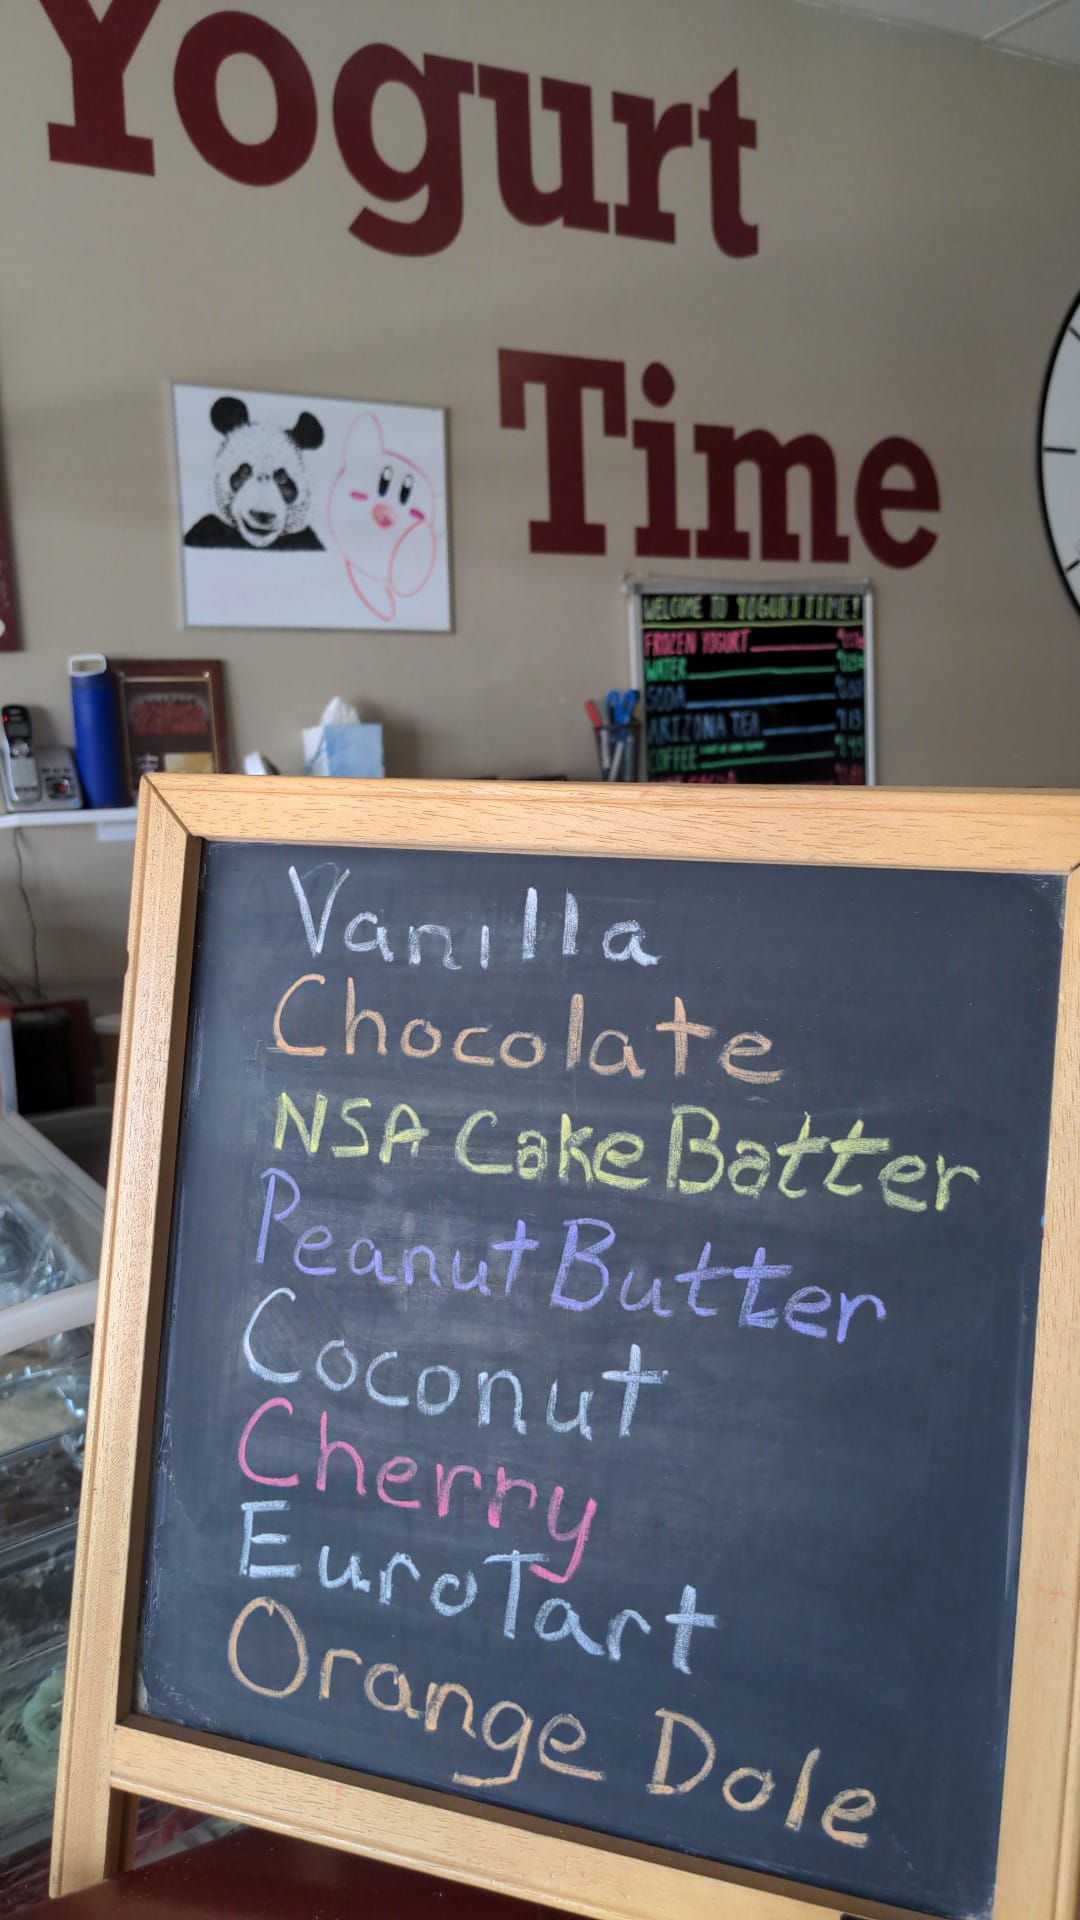 Yogurt
Time
WELCOME TO YOGURT TIME!
FROZEN YOGURT
WATER
SODA
ARIZONA TEA
COFFEE
Vanilla
Chocolate
NSA Cake Batter
Peanut Butter
Coconut
Cherry
EuroTart
Orange Dole